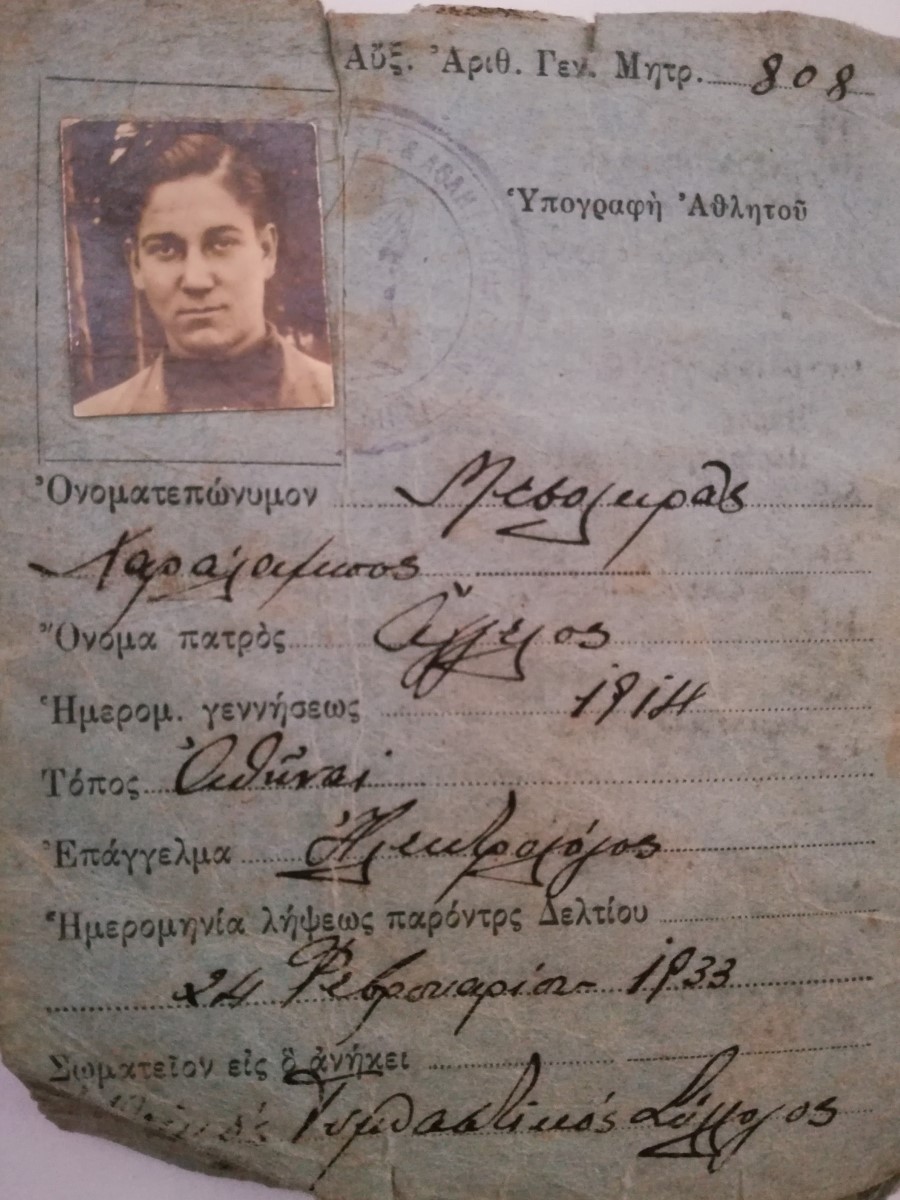 Αὔξ. Ἀριθ. Γεν. Μητρ. 808
& ΑΘΛΗ
Ὑπογραφὴ Ἀθλητοῦ
Ὀνοματεπώνυμον Μεσολειρᾶς
Χαράλαμπος
Ὄνομα πατρὸς Ἄγγελος
Ἡμερομ. γεννήσεως 1914
Τόπος Ἀθῆναι
Ἐπάγγελμα Ἠλεκτρολόγος
Ἡμερομηνία λήψεως παρόντρς Δελτίου
24 Φεβρουαρίου 1933
Σωματεῖον εἰς ὃ ἀνήκει
Γυμναστικός Σύλλογος